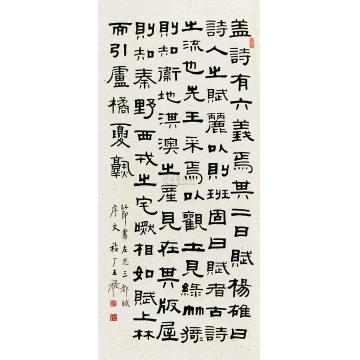 盖詩有六義焉其二曰賦楊雄曰
詩人之賦麗以則班固曰賦者古詩
之流也先王采焉以觀土見綠竹猗
則知衛地淇澳之產見在其版屋
則知秦野西戎之宅相如賦上林
而引盧橘夏
節書左思三都賦
序文